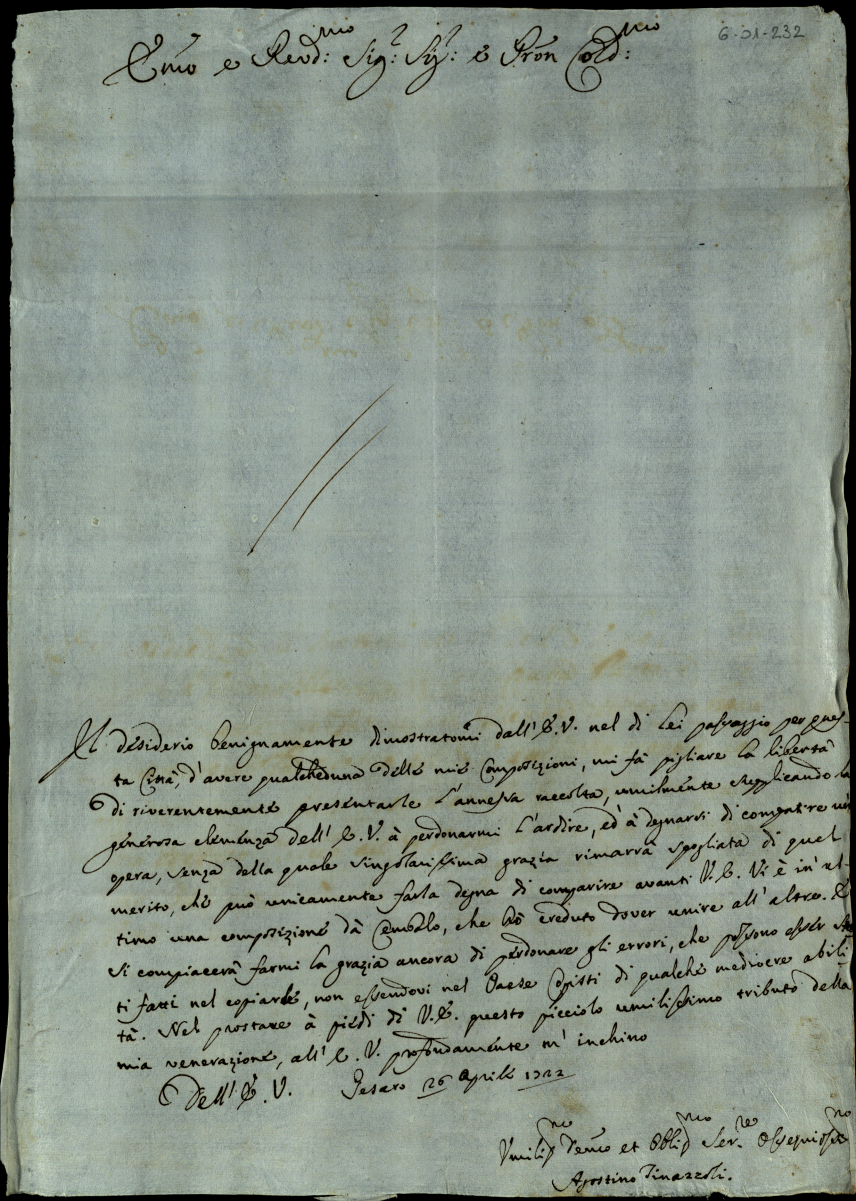 6-01-232
Emo e Revd:mo Sig:r Sig:r e Pron Cold:mo
Il desiderio benignamente dimostratomi dall' E.V. nel di Lei passaggio per ques-
ta Città, d'avere qualcheduna delle mie Composizioni, mi fà pigliare la libertà
di riverentemente presentarle l'annessa raccolta, umilmente supplicando la
generosa clemenza dell' E.V. à perdonarmi l'ardire, ed à degnarsi di compatire
opera, senza della quale singolarissima grazia rimarrà spogliata di quel
merito, che può unicamente farla degna di comparire avanti V.E. Vi è in ul-
timo una composizione dà Cembalo, che hò creduto dover unire all' altre. E
si compiacerà farmi la grazia ancora di perdonare gli errori, che possono esser sta
ti fatti nel copiarle, non essendovi nel Paese Copisti di qualche mediocre abili
tà. Nel prostrare à piedi di V.E. questo picciolo umilissimo tributo della
mia venerazione, all' E.V. profondamente m' inchino
Dell' E.V. Pesaro 26 Aprile 1722
Umilis:mo Devmo et Obblis:mo Ser:re Ossequiosis:mo
Agostino Tinazzoli.